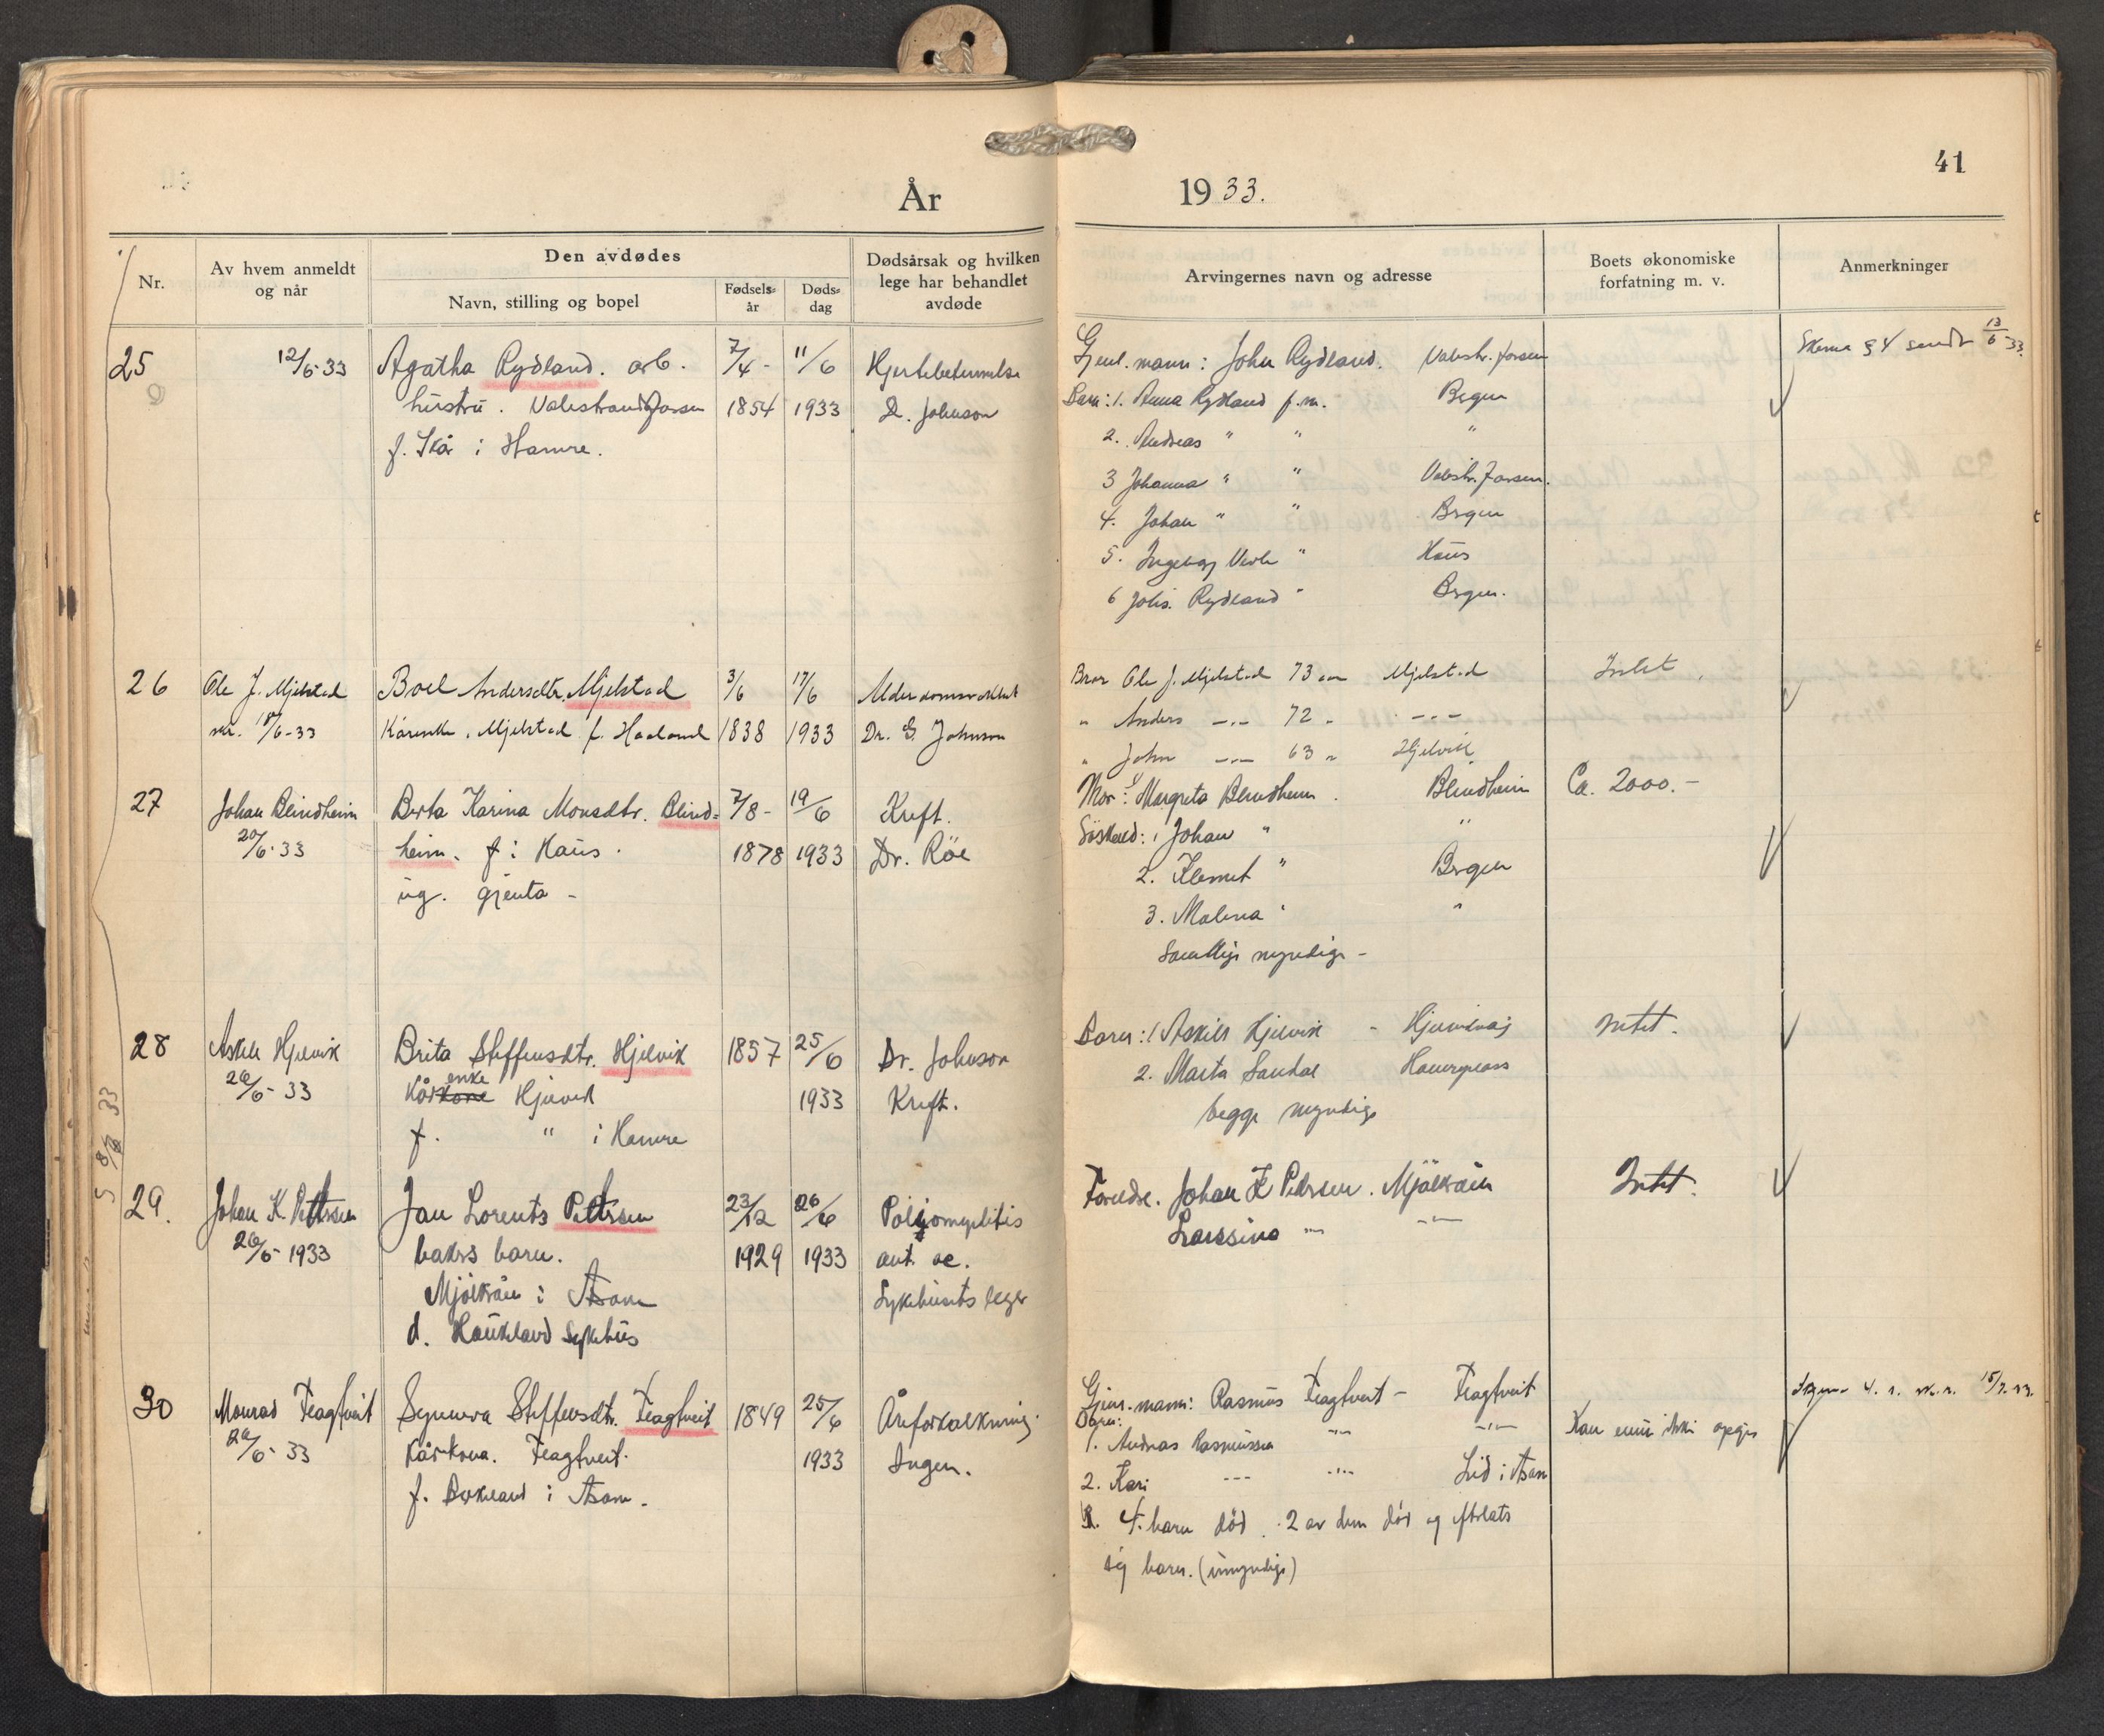 41
År 1933.
Nr.
Av hvem anmeldt og når
Den avdødes
Navn, stilling og bopel
Fødsels=år
Døds=dag
Dødsårsak og hvilken lege har behandlet avdøde
Arvingernes navn og adresse
Boets økonomiske forfatning m. v.
Anmerkninger
25 12/6-33 Agatha Rydland. arb. 7/4- 11/6 Hjertebetennelse
hustru. Valestrandfossen 1854 1933 D. Johnson
f. Skår i Hamre.
Gjenl. mann: Johan Rydland. Valestr.fossen
Barn: 1. Anna Rydland f.m. Bergen
2. Andreas " " "
3 Johanna " " Valestr.fossen.
4. Johan " " Bergen
5. Ingeborg " Haus
6 Johs. Rydland " Bergen.
Skema § 4 sendt 13/6-33.
26 Ole J. Mjelstad Boel Andersdtr. Mjelstad 3/6 17/6 Alderdomssvakhet
18/6-33 Kårenke. Mjelstad f. Haaland 1838 1933 Dr. G. Johnson
Bror Ole J. Mjelstad 73 aar Mjelstad Intet
" Anders -"- 72 " -"-
" John -"- 63 " Hjelvik
27 Johan Blindheim Berta Karina Monsdtr. Blind= 7/8- 19/6 Kreft.
20/6-33 heim. f i Haus. 1878 1933 Dr. Röe
ug. gjenta -
Mor: Margreta Blindheim. Blindheim Ca. 2000.-
Söskend: 1 Johan " "
2. Klemet " Bergen
3. Malena " "
Samtlige myndige -
28 Askild Hjelvik Brita Steffensdtr. Hjelvik 1857 25/6 Dr. Johnson
26/6-33 Kårkone enke Hjelvik 1933 Kreft.
f. " i Hamre
Barn: 1 Askild Hjelvik - Intet.
2. Marta Sandal
begge myndige
29. Johan K. Pettersen Jan Lorents Pettersen 23/12 26/6 Poliomyelitis
26/6-1933 bakers barn. 1929 1933 ant. ac.
Mjölkråen i Åsane Sykehusets leger
d. Haukeland Sykehus
Foreldre. Johan K Petersen. Mjölkråen Intet.
Larssine -"- -"-
30 Monrad Flagtveit Synneva Steffensdtr. Flagtveit 1849 25/6 Åreforkalkning.
26/6-33 Kårkona. Flagtveit. 1933 Ingen.
f. Birkeland i Åsane.
Gjenl. mann: Rasmus Flagtveit - Flagtveit
Barn:
1. Andreas Rasmussen -"- -"- Kan ennu ikke opgis
2. Kari --- -"- Lid i Åsane
3. 4. barn död. 2 av dem död og efterlatt
sig barn. (umyndige)